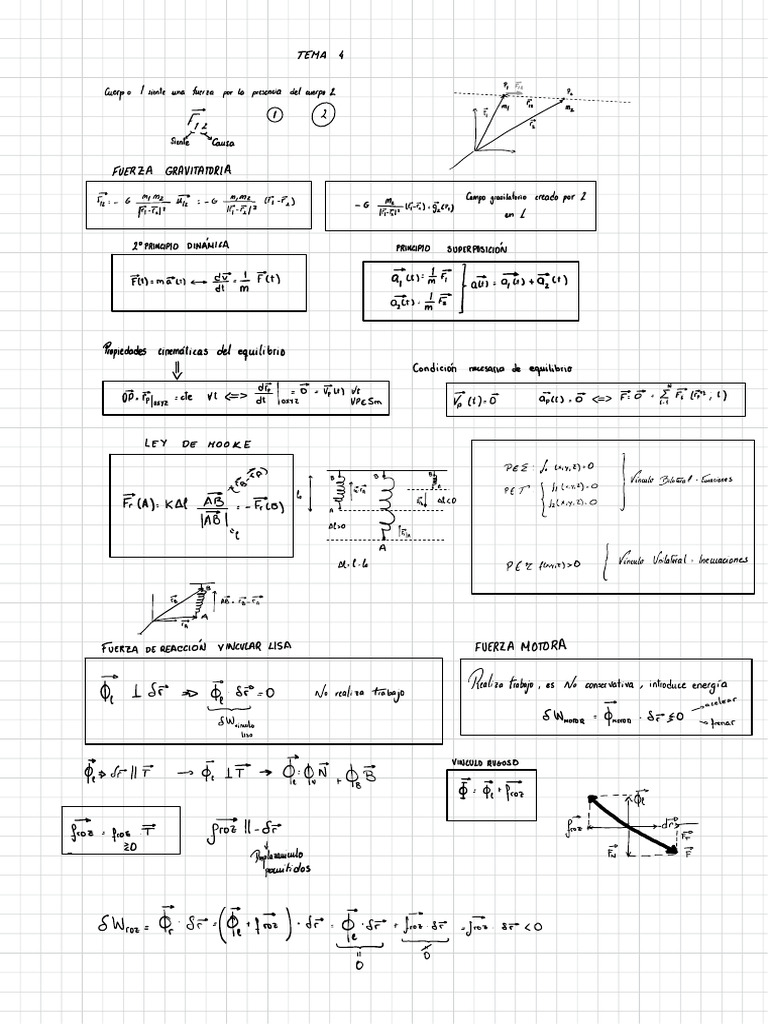 TEMA 4
Cuerpo 1 siente una fuerza por la presencia del cuerpo 2
F⃗₁₂
Siente Causa
1 2
P₁ F⃗₁₂ P₂
m₁ m₂
r⃗₁ r⃗₂
FUERZA GRAVITATORIA
F⃗₁₂ = - G m₁m₂/|r⃗₁-r⃗₂|² u⃗₁₂ = - G m₁m₂/|r⃗₁-r⃗₂|³ (r⃗₁-r⃗₂)
- G m₂/|r⃗₁-r⃗₂|³ (r⃗₁-r⃗₂) = g⃗₂(r₁) Campo gravitatorio creado por 2
en 1
2º PRINCIPIO DINÁMICA
F⃗(t) = m a⃗(t) ⟷ dv⃗/dt = 1/m F⃗(t)
PRINCIPIO SUPERPOSICIÓN
a⃗₁(t) = 1/m F⃗₁
a⃗₂(t) = 1/m F⃗₂
} a⃗(t) = a⃗₁(t) + a⃗₂(t)
Propiedades cinemáticas del equilibrio
⇓
OP⃗ = r⃗p|oxyz = cte ∀t <=> dr⃗p/dt|oxyz = 0⃗ = v⃗p(t) ∀t
∀P∈Sm
Condición necesaria de equilibrio
v⃗p(t) = 0⃗ a⃗p(t) = 0⃗ <=> F⃗ = 0⃗ = Σ F⃗i
LEY DE HOOKE
(r⃗B - r⃗A)
F⃗r(A) = K Δl AB⃗/|AB⃗| = - F⃗r(B)
= l
B B B
l₀
A
Δl>0 Δl<0
A
Δl = l - l₀
r⃗B B
AB⃗ = r⃗B - r⃗A
r⃗A A
P∈Σ: f(x,y,z)=0
P∈Γ { f₁(x,y,z)=0
f₂(x,y,z)=0
Vínculo Bilateral - Ecuaciones
P∈Σ f(x,y,z)>0 { Vínculo Unilateral - Inecuaciones
FUERZA DE REACCIÓN VINCULAR LISA
Φ⃗l ⊥ δr⃗ => Φ⃗l · δr⃗ = 0 No realiza trabajo
δW vínculo
liso
FUERZA MOTORA
Realiza trabajo, es No conservativa, introduce energía
δW MOTOR = Φ⃗ MOTOR · δr⃗ ≶ 0
acelerar
frenar
Φ⃗l => δr⃗ || T⃗ → Φ⃗l ⊥ T⃗ → Φ⃗l = Φ_N N⃗ + Φ_B B⃗
VINCULO RUGOSO
Φ⃗ = Φ⃗l + f⃗roz
f⃗roz = froz T⃗
≥0
f⃗roz || - δr⃗
Desplazamiento
permitidos
Φ⃗l
f⃗roz dr⃗
F⃗T
F⃗N F⃗
δW roz = Φ⃗r · δr⃗ = (Φ⃗l + f⃗roz) · δr⃗ = Φ⃗l · δr⃗ + f⃗roz · δr⃗ = f⃗roz · δr⃗ < 0
0
0